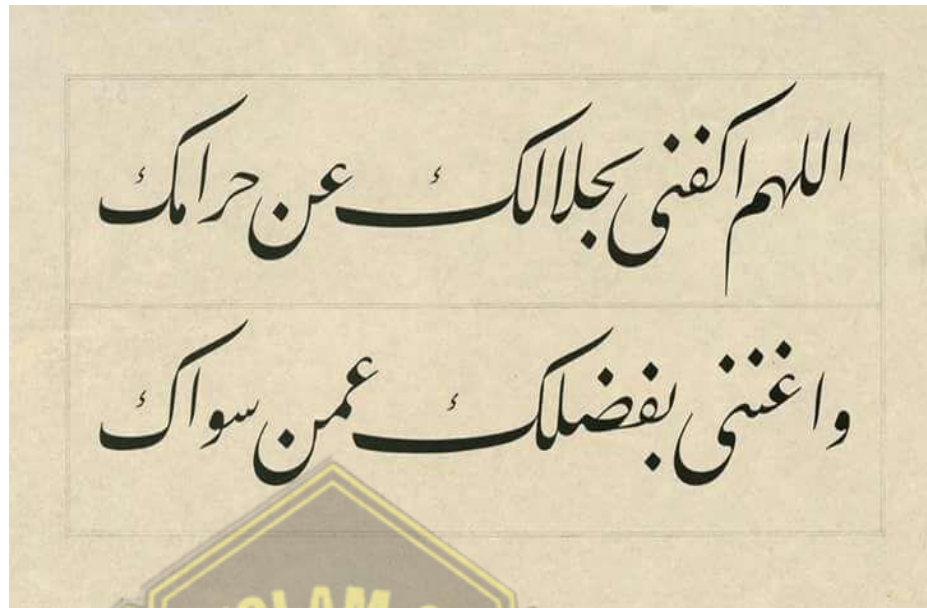 اللهم اكفنى بحلالك عن حرامك
واغننى بفضلك عمن سواك